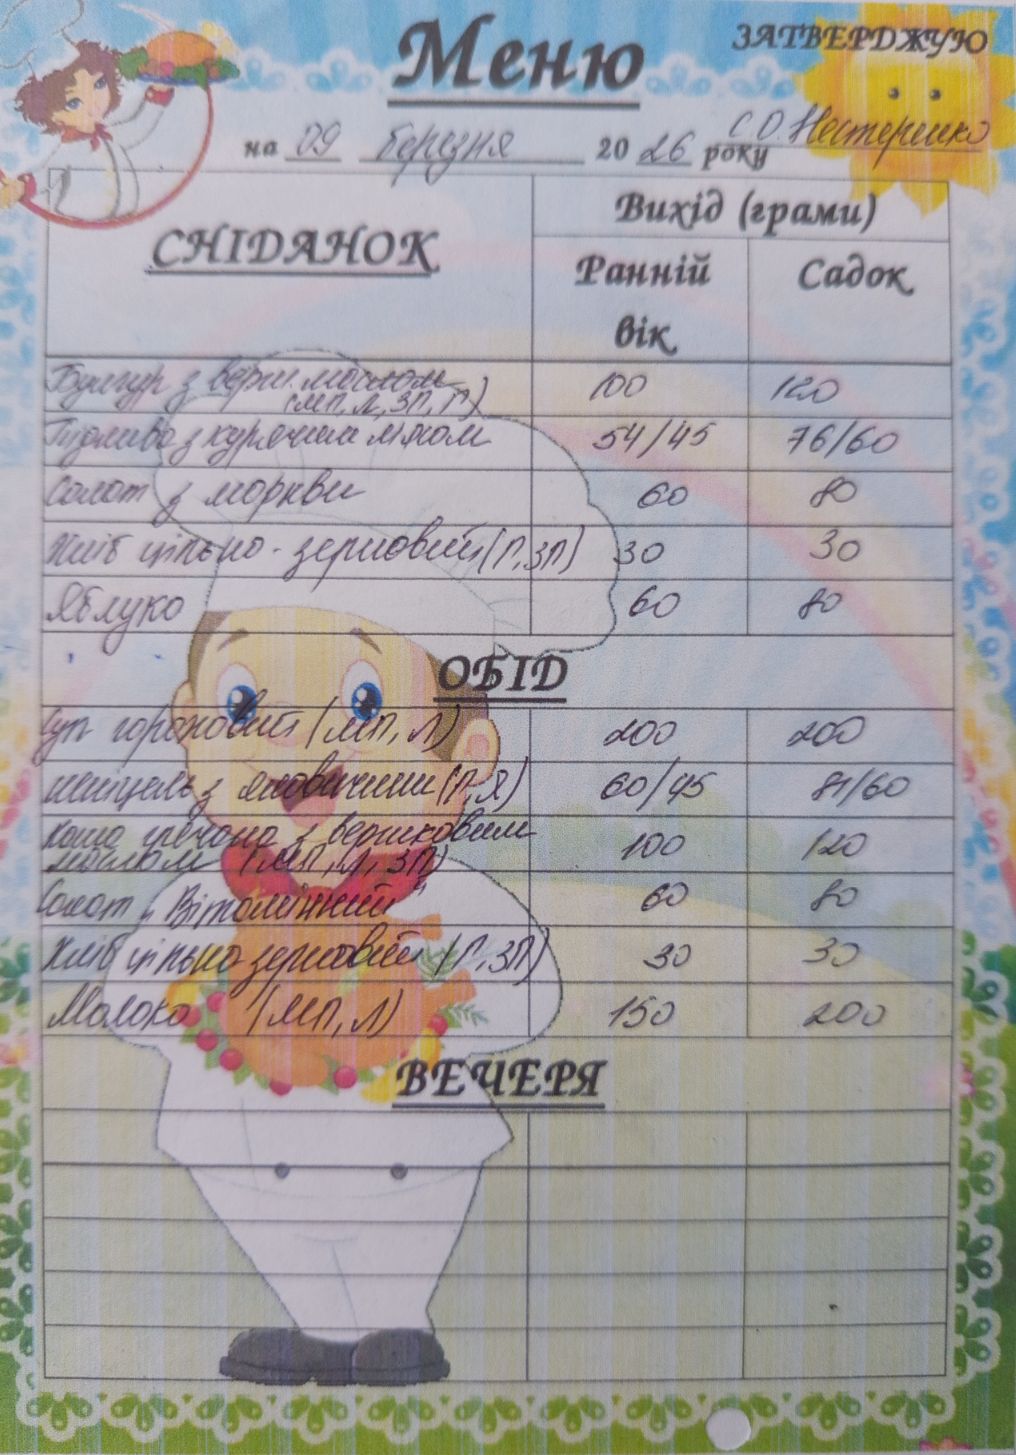 Меню
ЗАТВЕРДЖУЮ
на 09 березня 2026 року
С.О. Нестеренко
СНІДАНОК
Вихід (грами)
Ранній вік
Садок
Булгур з верш. маслом (МП, Л, ЗП, Г) 100 120
Підлива з курячим м'ясом 54/45 76/60
Салат з моркви 60 80
Хліб цільно-зерновий (Г, ЗП) 30 30
Яблуко 60 80
ОБІД
Суп гороховий (МП, Л) 200 200
Шніцель з яловичини (Г, Я) 60/45 81/60
Каша гречана з вершковим
маслом (МП, Л, ЗП) 100 120
Салат "Вітамінний" 60 80
Хліб цільнозерновий (Г, ЗП) 30 30
Молоко (МП, Л) 150 200
ВЕЧЕРЯ